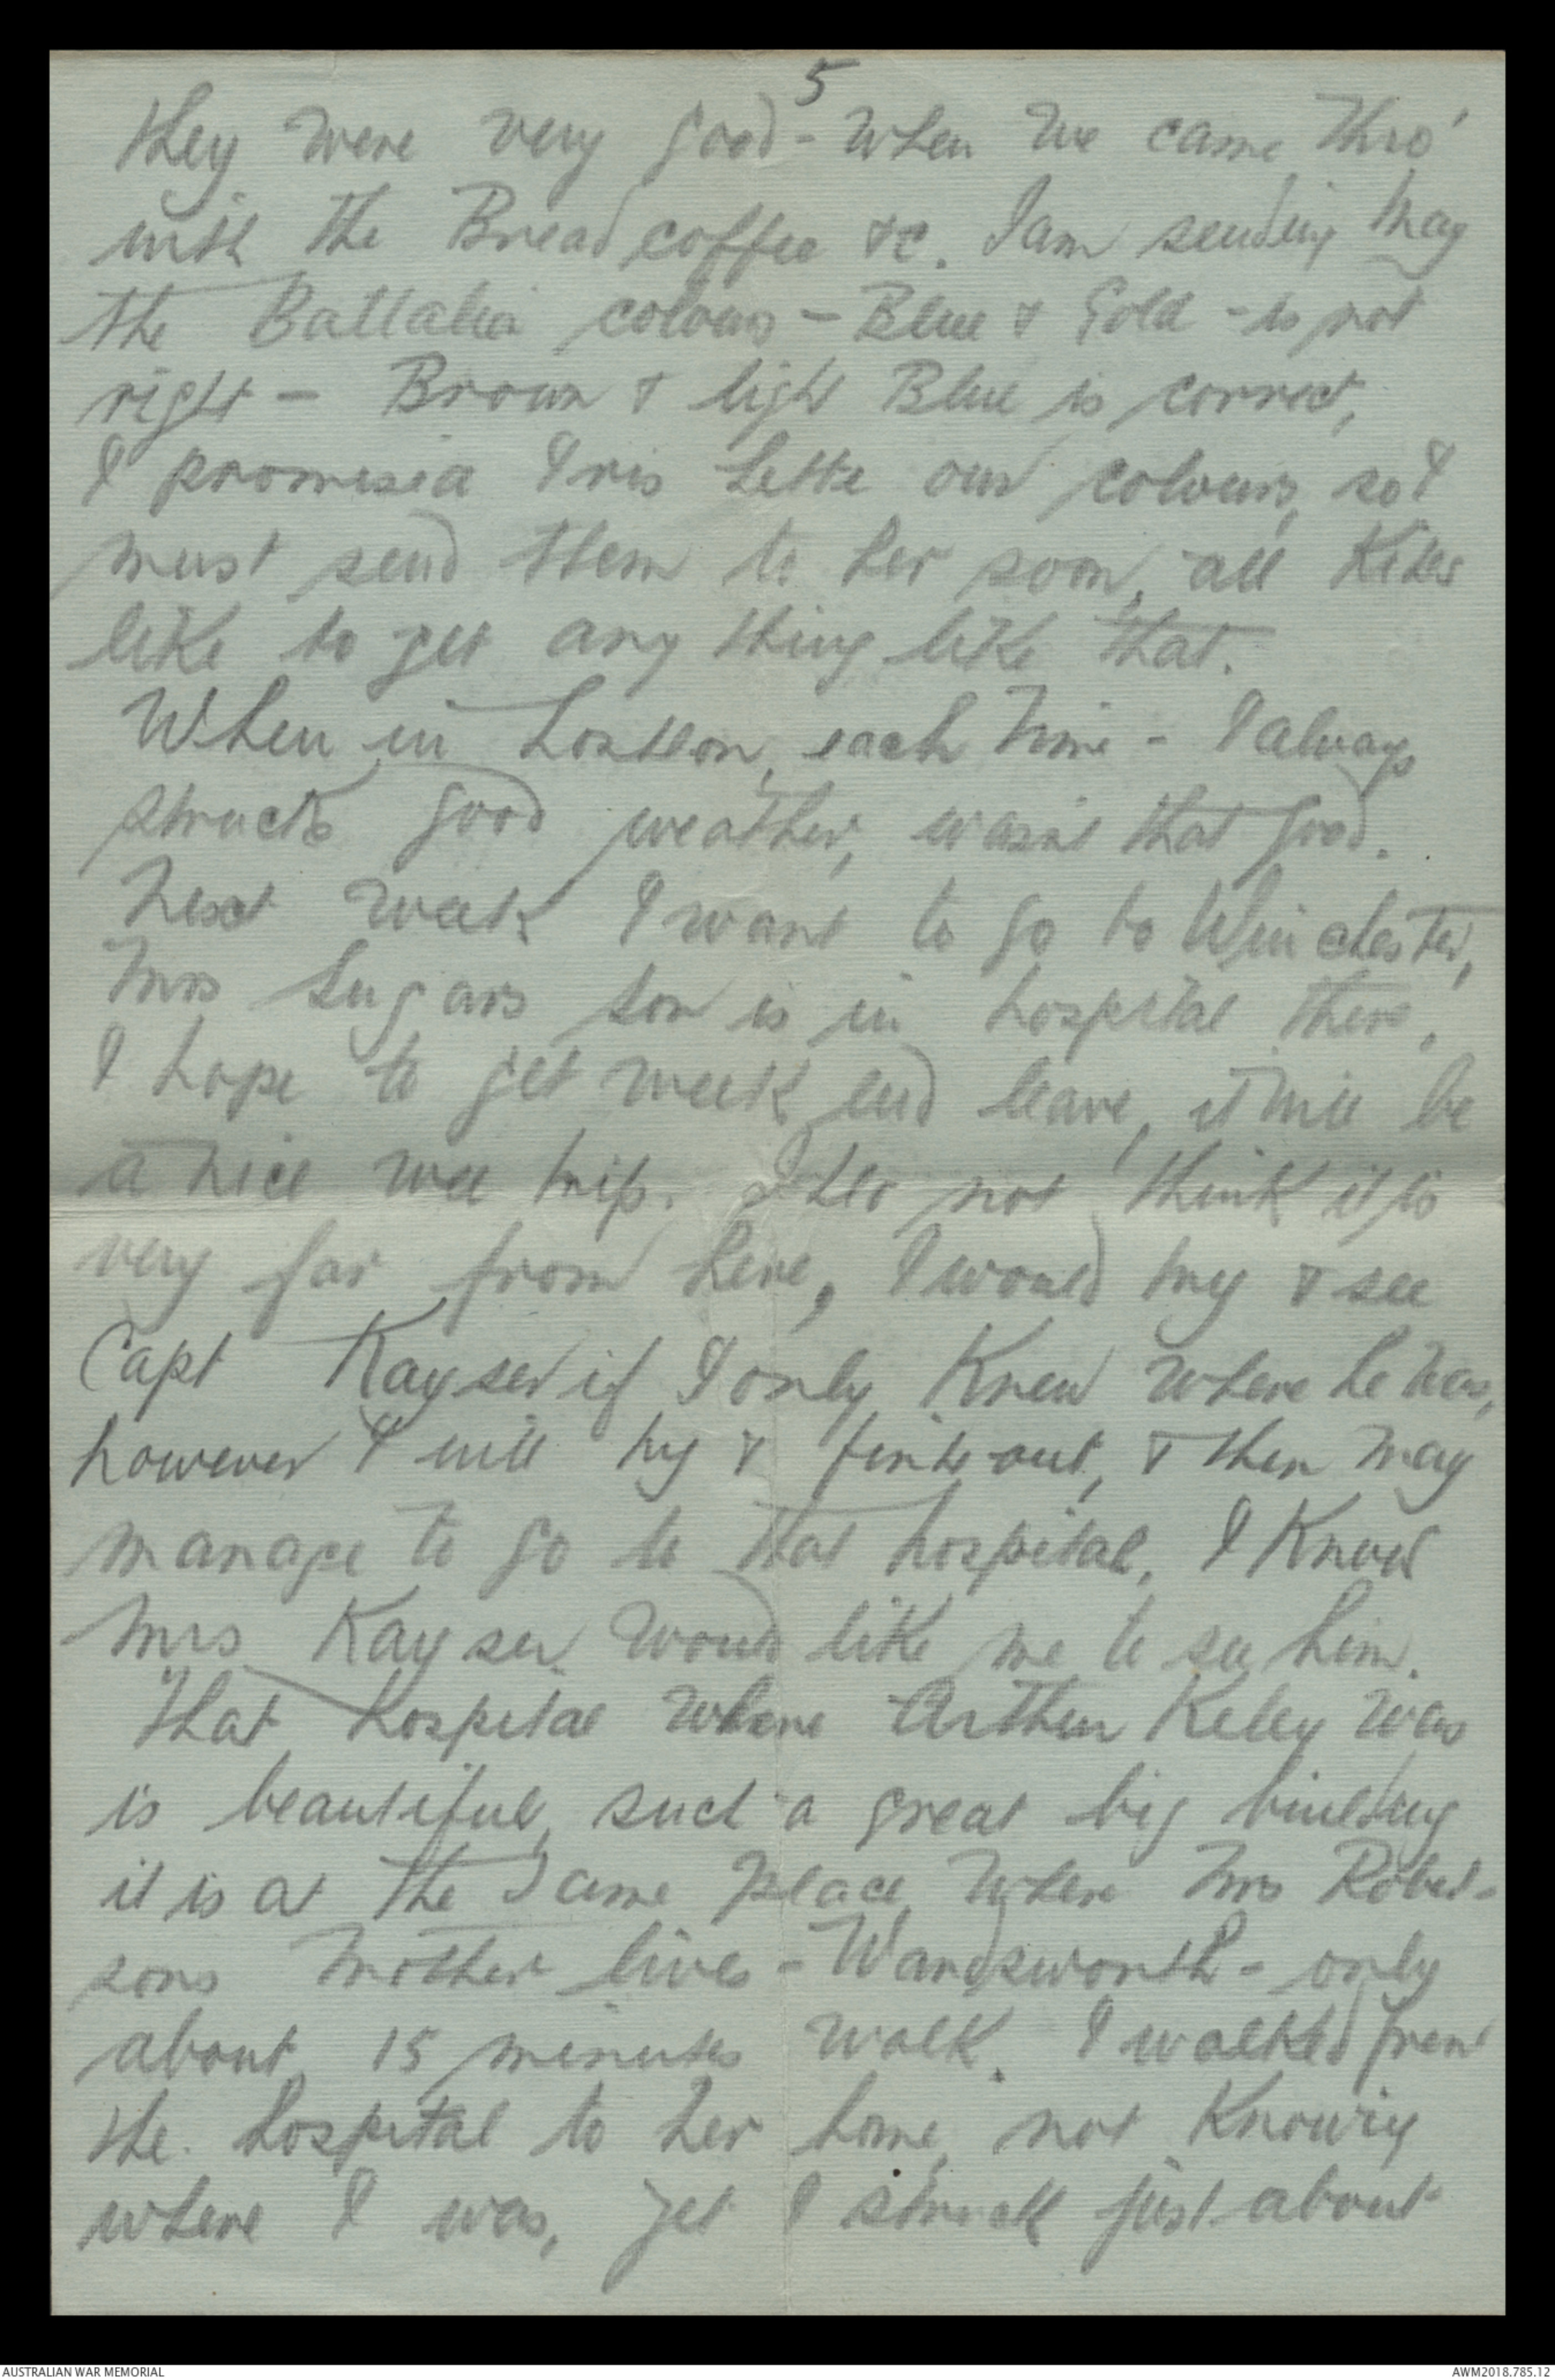 5
They were very good - when we came thro'
with the Bread coffee &c. I am sending May
the Battalion colours - Blue & Gold - is not
right - Brown & light Blue is correct,
I promised Iris our colours, so I
must send them to her soon, all Kides
like to get any thing like that.
When in London, each time - I always
struck good weather, wasnt that good.
Next week I want to go to Winchester,
Mrs Sugars son is in hospital there,
I hope to get week end leave, it will be
a nice wee trip. I do not think it is
very far from here, I would try & see
Capt Kayser if I only Knew where he was,
however I will try & find out, & then may
manage to go to that hospital, I Know
Mrs Kayser would like me to see him.
That hospital where Arthur Keley was
is beautiful, such a great big building
it is at the same place where Mrs Robert-
sons mother lives - Wandsworth - only
about 15 minutes walk. I walked from
the hospital to her home, not Knowing
where I was, yet I struck just about
AUSTRALIAN WAR MEMORIAL
AWM2018.785.12